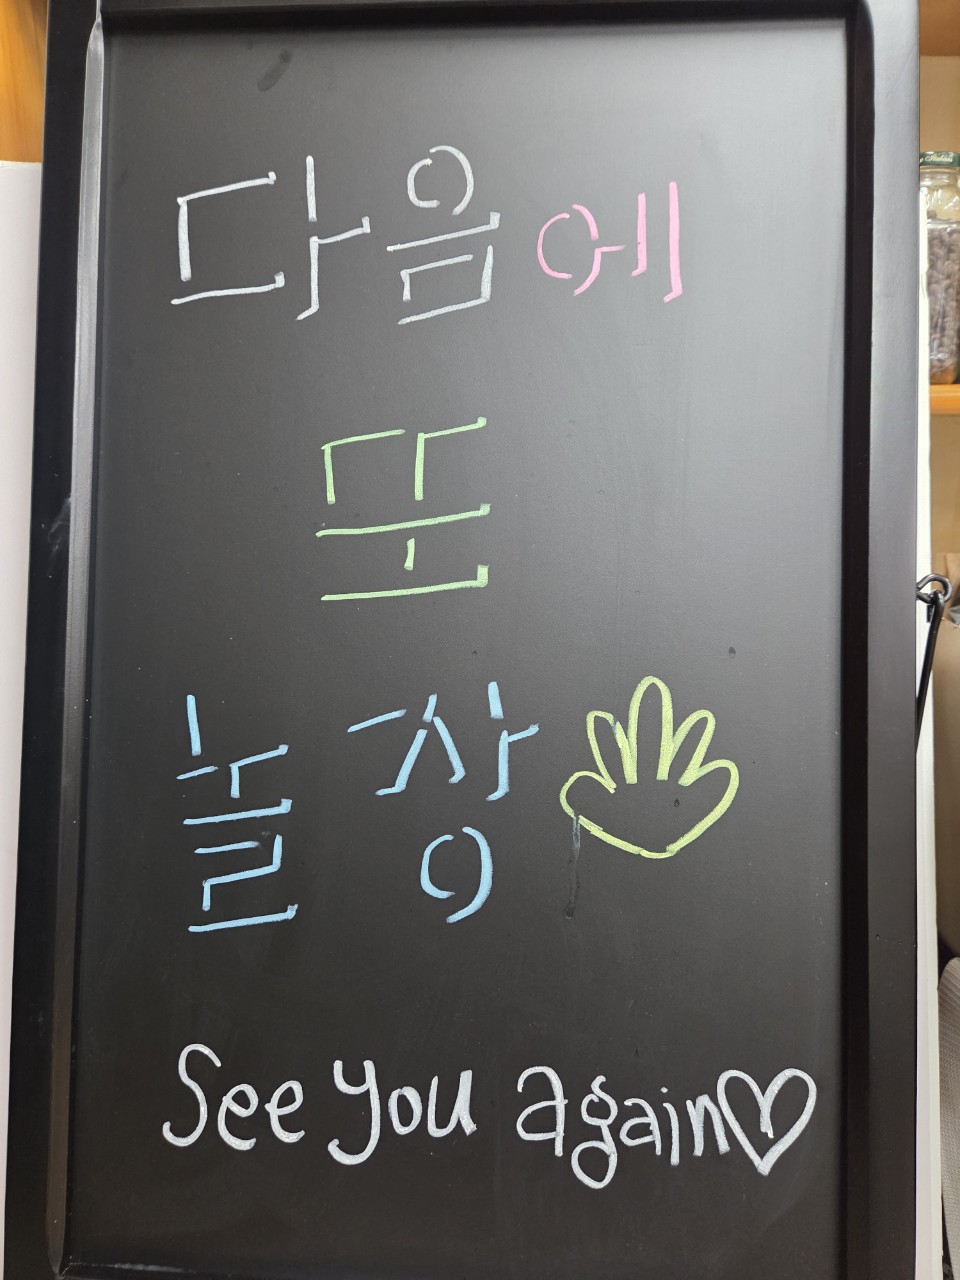 다음에
또
놀장
See you again♡